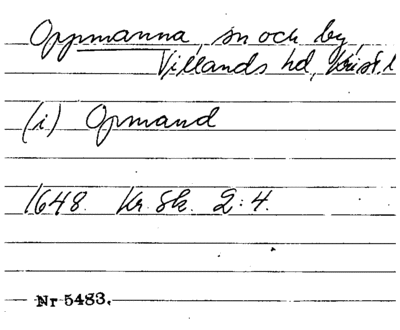 Oppmanna, sn och by,
Villands hd, Krist. l
(i) Opmand
1648. Kr. Sk. 2:4.
Nr 5483.